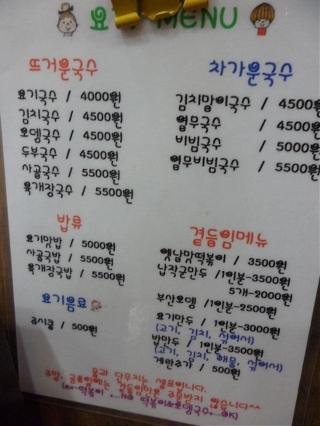 요기 MENU
뜨거운국수
요기국수 / 4000원
김치국수 / 4500원
오뎅국수 / 4500원
두부국수 / 4500원
사골국수 / 5500원
육개장국수 / 5500원
차가운국수
김치말이국수 / 4500원
열무국수 / 4500원
비빔국수 / 5000원
열무비빔국수 / 5500원
밥류
요기맛밥 / 5000원
사골국밥 / 5500원
육개장국밥 / 5500원
요기음료
쿨시쿨 / 500원
곁들임메뉴
옛날맛떡볶이 / 3500원
납작군만두 / 1인분-3500원
5개-2000원
부산오뎅 / 1인분-2500원
요기만두 / 1인분-3000원
(고기, 김치, 섞어서)
반만두 / 1인분-3500원
(고기, 김치, 해물, 섞어서)
계란추가 / 500원
물과 단무지는 셀프입니다.